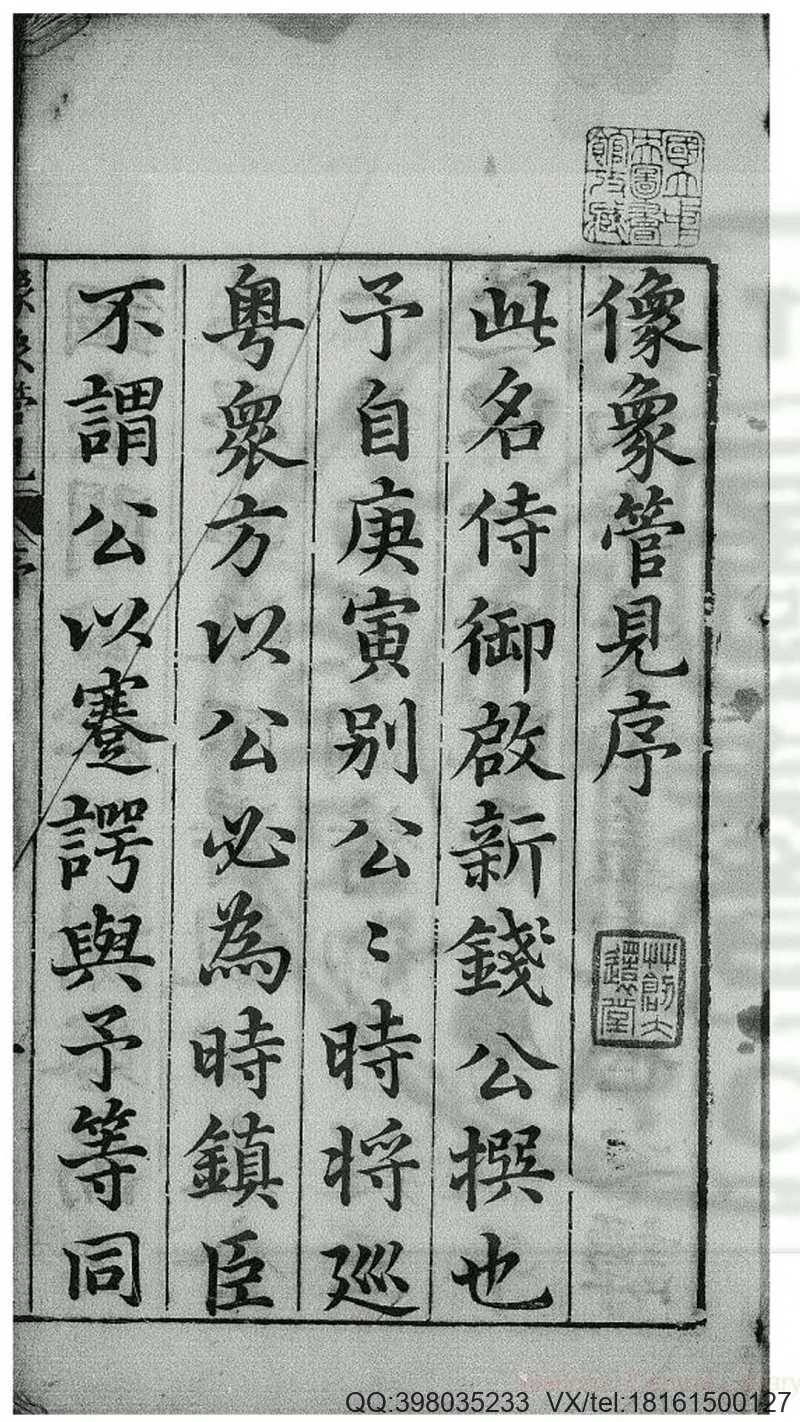 國立中
央圖書
館收藏
像象管見序
此名侍御啟新錢公撰也
予自庚寅别公〻時将廵
粤衆方以公必為時鎮臣
不謂公以蹇諤與予等同
像象管見
序
QQ:398035233 VX/tel:18161500127